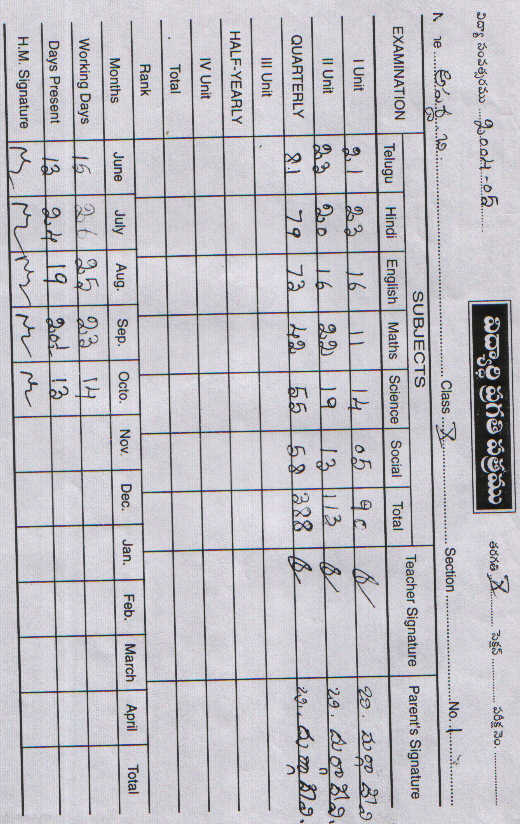 విద్యా సంవత్సరము 2004-05
విద్యార్థి ప్రగతి పత్రము
తరగతి X సెక్షన్ వరీక్ష నెం.
Class X Section No. 1
EXAMINATION SUBJECTS Teacher Signature Parent's Signature
Telugu Hindi English Maths Science Social Total
I Unit 21 23 16 11 14 05 90
II Unit 23 20 16 22 19 13 113
QUARTERLY 81 79 73 42 55 58 388
III Unit
HALF-YEARLY
IV Unit
Total
Rank
Months June July Aug. Sep. Octo. Nov. Dec. Jan. Feb. March April Total
Working Days 15 26 25 23 14
Days Present 13 24 19 20 13
H.M. Signature